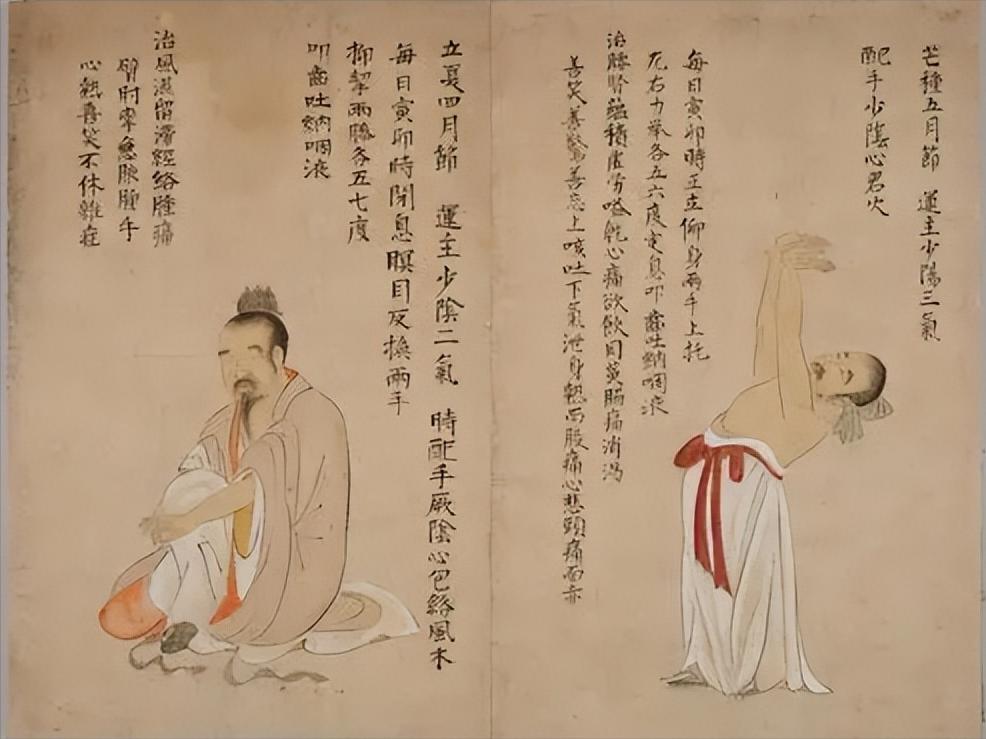 芒種五月節 運主少陽三氣
配手少陰心君火
每日寅卯時正立仰身兩手上托
左右力举各五六度定息叩齒吐納咽液
治腰腎蘊積虛勞嗌乾心痛欲飲目黃脇痛消渴
善笑善驚善忘上咳吐下氣泄身熱而股痛心悲頭痛面赤
立夏四月節 運主少陰二氣 時配手厥陰心包絡風木
每日寅卯時閉息瞑目反換兩手
抑掣兩膝各五七度
叩齒吐納咽液
治風濕留滯經絡腫痛
臂肘攣急腋腫手
心熱喜笑不休雜症